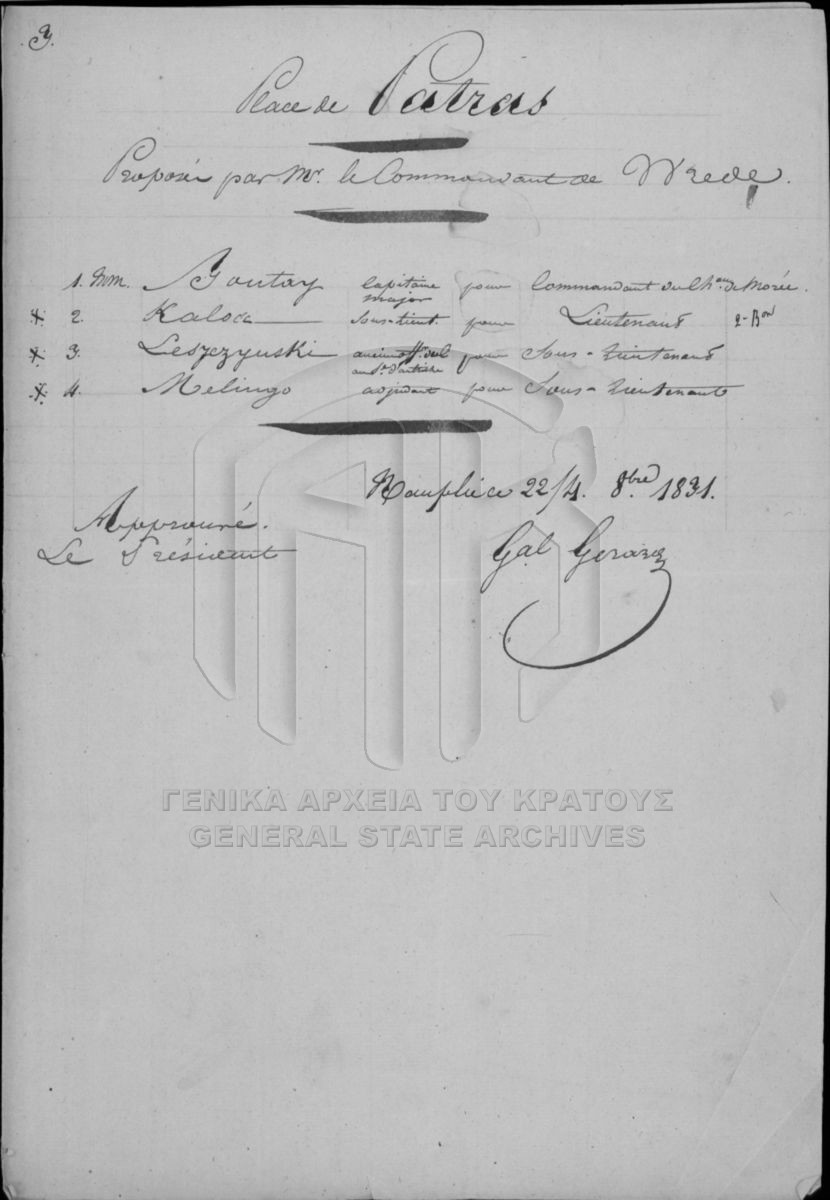 3.
Place de Patras
Proposés par Mr. le Commandant de Wrede.
1. Mm. Goutay capitaine major pour Commandant du Chau. de Morée.
* 2. Kalocc sous-lieut. pour Lieutenant 2e Bon
* 3. Leszczynski ancien off. pour Sous-Lieutenant
* 4. Melingo adjudant pour Sous-Lieutenant
Nauplie ce 22/4. 8bre 1831.
Approuvé.
Le Président
Gal Gerard
ΓΕΝΙΚΑ ΑΡΧΕΙΑ ΤΟΥ ΚΡΑΤΟΥΣ
GENERAL STATE ARCHIVES